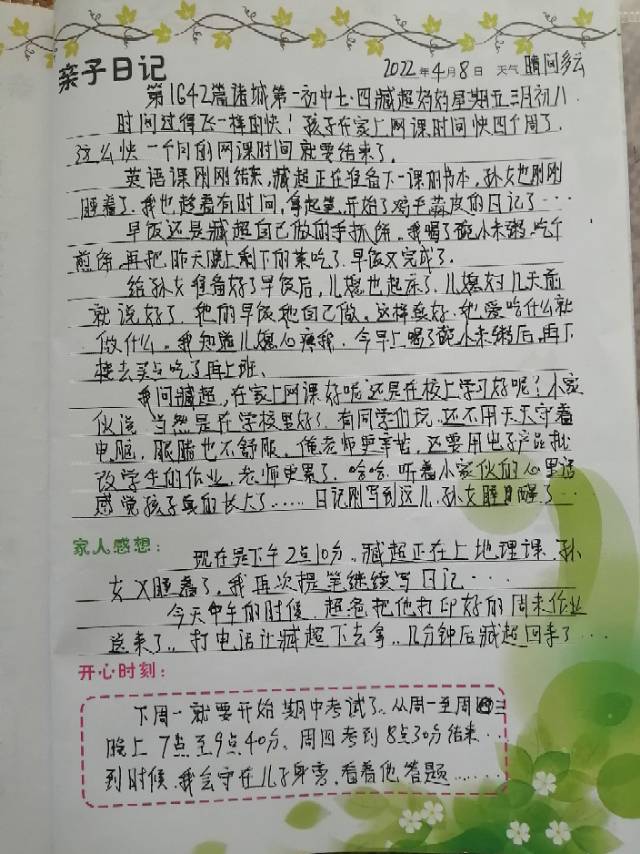 亲子日记
2022年4月8日 天气 晴间多云
第1642篇诸城第一初中七·四臧超妈妈星期五三月初八
时间过得飞一样的快！孩子在家上网课时间快四个周了，
这么快一个月的网课时间就要结束了。
英语课刚刚结束，臧超正在准备下一课的书本，孙女也刚刚
睡着了，我也趁着有时间，拿起笔，开始了鸡毛蒜皮的日记了……
早饭还是臧超自己做的手抓饼，我喝了碗小米粥，吃个
煎饼，再把昨天晚上剩下的菜吃了，早饭又完成了。
给孙女准备好了早饭后，儿媳也起床了，儿媳好几天前
就说好了，她的早饭她自己做，这样真好，她爱吃什么就
做什么。我知道儿媳心疼我，今早上喝了碗小米粥后，再下
楼去买点吃了再上班、
我问臧超，在家上网课好呢还是在校上学习好呢？小家
伙说，当然是在学校里好了，有同学们玩，还不用天天守着
电脑，眼睛也不舒服，俺老师更辛苦，还要用电子产品批
改学生的作业，老师更累了，哈哈，听着小家伙的心里话
感觉孩子真的长大了……日记刚写到这儿，孙女睡醒了…
家人感想： 现在是下午2点10分，臧超正在上地理课，孙
女又睡着了，我再次提笔继续写日记…
今天中午的时候，超爸把他打印好的周末作业
送来了，打电话让臧超下去拿，几分钟后臧超回来了…
开心时刻：
下周一就要开始期中考试了，从周一至周三
晚上7点至9点40分，周四考到8点30分结束…
到时候，我会守在儿子身旁，看着他答题……